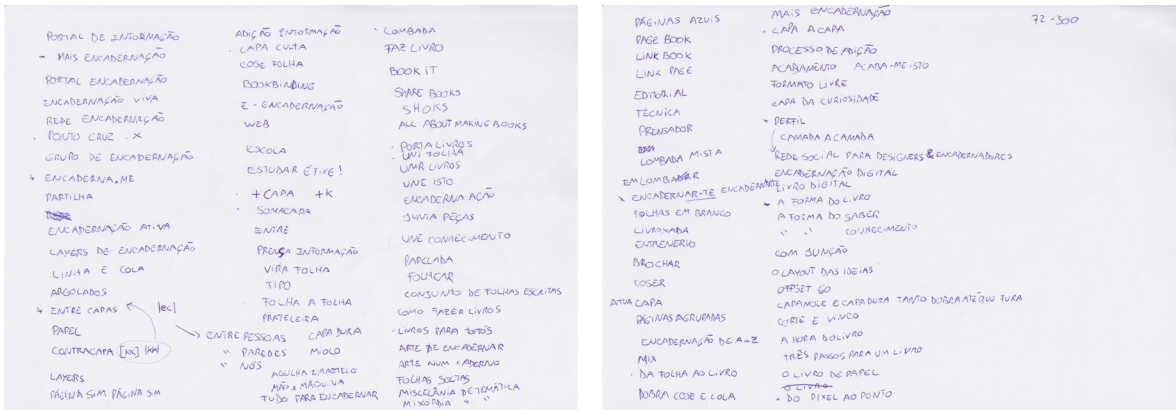 PORTAL DE INFORMAÇÃO
- MAIS ENCADERNAÇÃO
PORTAL ENCADERNAÇÃO
ENCADERNAÇÃO VIVA
REDE ENCADERNAÇÃO
. PONTO CRUZ . X
GRUPO DE ENCADERNAÇÃO
+ ENCADERNA.ME
PARTILHA
ENCADERNAÇÃO ATIVA
LAYERS DE ENCADERNAÇÃO
LINHA E COLA
ARGOLADOS
+ ENTRE CAPAS |ec|
PAPEL
CONTRACAPA [KK]
LAYERS
PÁGINA SIM PÁGINA SIM
ADIÇÃO INFORMAÇÃO
. CAPA CULTA
COSE FOLHA
BOOKBINDING
E-ENCADERNAÇÃO
WEB
ESCOLA
ESTUDAR É FIXE!
. +CAPA +K
. SOMACAPA
ENTRE
PRENSA INFORMAÇÃO
VIRA FOLHA
TIPO
. FOLHA A FOLHA
PRATELEIRA
ENTRE PESSOAS CAPA DURA
" PAREDES MIOLO
" NÓS
AGULHA E MARTELO
MÃO X MÁQUINA
TUDO PARA ENCADERNAR
. LOMBADA
FAZ LIVRO
BOOK iT
SHARE BOOKS
SHOKS
ALL ABOUT MAKING BOOKS
. PORTA LIVROS
. UNI FOLHA
UMR LIVROS
UNE ISTO
ENCADERNA AÇÃO
JUNTA PEÇAS
UNE CONHECIMENTO
PAPELADA
FOLHEAR
CONJUNTO DE FOLHAS ESCRITAS
COMO FAZER LIVROS
. LIVROS PARA TOTÓS
ARTE DE ENCADERNAR
ARTE NUM CADERNO
FOLHAS SOLTAS
MISCELÂNIA DE TEMÁTICA
MIXÓRDIA " "
PÁGINAS AZUIS
PAGE BOOK
LINK BOOK
LINK PAGE
EDITORIAL
TÉCNICA
PRENSADOR
LOMBADA MISTA
EM LOMBADAR
x ENCADERNAR-TE ENCADERNARTE
FOLHAS EM BRANCO
LIVROXADA
ENTRENERVO
BROCHAR
COSER
ATUA CAPA
PÁGINAS AGRUPADAS
ENCADERNAÇÃO DE A a Z
MIX
. DA FOLHA AO LIVRO
DOBRA COSE E COLA
MAIS ENCADERNAÇÃO
. CAPA A CAPA
PROCESSO DE ADIÇÃO
ACABAMENTO ACABA-ME ISTO
FORMATO LIVRE
CAPA DA CURIOSIDADE
+ PERFIL
CAMADA A CAMADA
REDE SOCIAL PARA DESIGNERS & ENCADERNADORES
ENCADERNAÇÃO DIGITAL
LIVRO DIGITAL
+ A FORMA DO LIVRO
A FORMA DO SABER
" " CONHECIMENTO
COM JUNÇÃO
O LAYOUT DAS IDEIAS
OFFSET GO
CAPA MOLE E CAPA DURA TANTO DOBRA ATÉ QUE FURA
CORTE E VINCO
A HORA DO LIVRO
TRÊS PASSOS PARA UM LIVRO
O LIVRO DE PAPEL
O LIVRO
- DO PIXEL AO PONTO
72-300